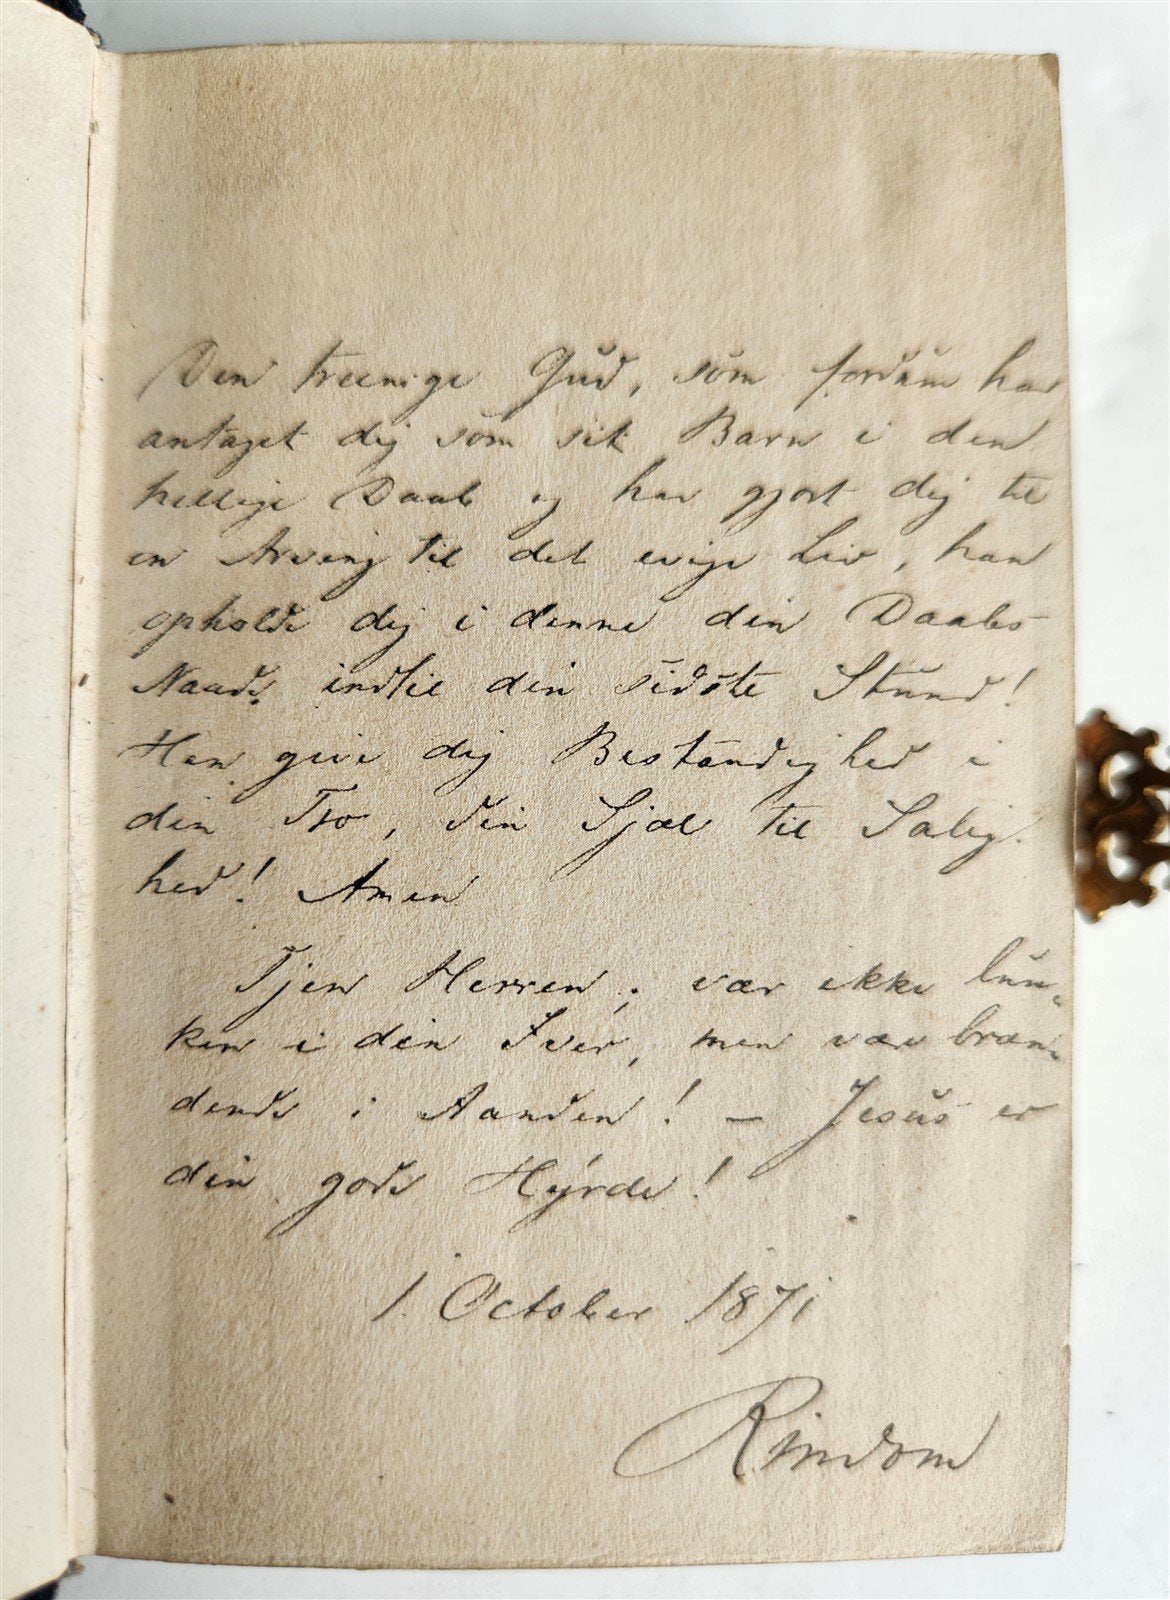 Den treenige Gud, som fordum har
antaget dig som sit Barn i den
hellige Daab og har gjort dig til
en Arving til det evige Liv, han
opholde dig i denne din Daabs
Naade indtil din sidste Stund!
Han give dig Bestandighed i
din Tro, din Sjæl til Salig-
hed! Amen
Tjen Herren; vær ikke lun-
ken i din Iver, men vær bræn-
dende i Aanden! — Jesus er
din gode Hyrde!
1. October 1871
Rindom